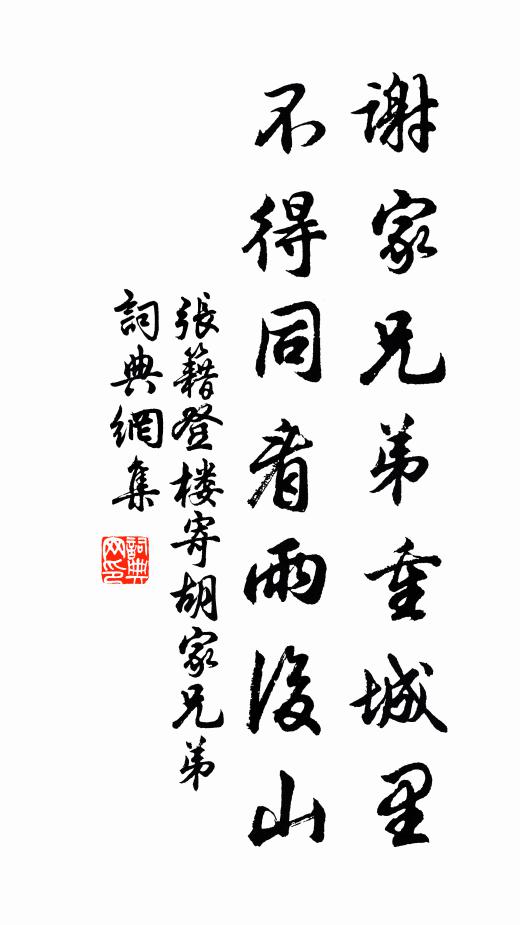 謝家兄弟重城里
不得同看雨後山
張籍登楼寄胡家兄弟
詞典網集
詞典网印